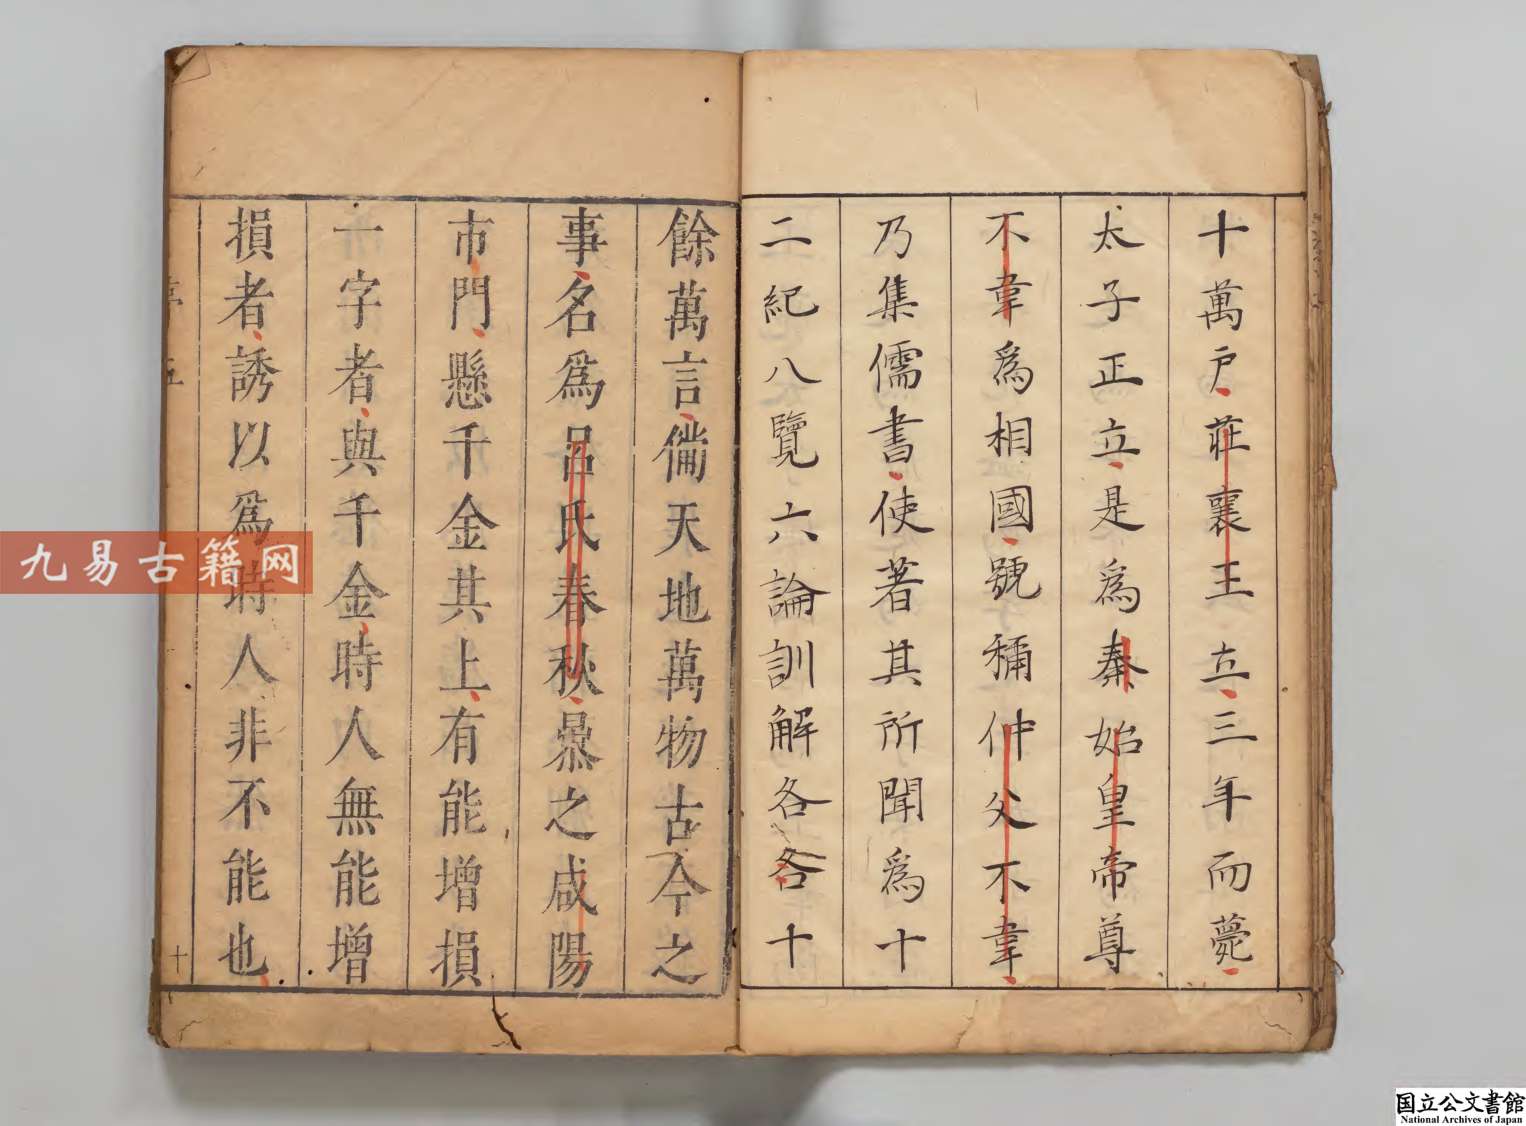 十萬戶莊襄王立三年而薨
太子正立是爲秦始皇帝尊
不韋爲相國號稱仲父不韋
乃集儒書使著其所聞爲十
二紀八覽六論訓解各各十
餘萬言備天地萬物古今之
事名爲呂氏春秋暴之咸陽
市門懸千金其上有能增損
一字者與千金時人無能增
損者誘以爲時人非不能也
十
九易古籍网
国立公文書館
National Archives of Japan